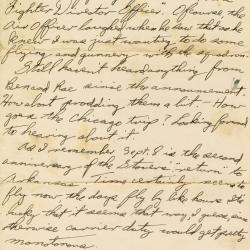 Fighter Director Officer". Of course, the
Air Officer laughed when he saw that as he
knew I was just wanting to do some
flying and gunnery with the squadron.
Still haven't heard anything from
Bernard Rae since the announcement.
How about prodding them a bit. How
goes the Chicago trip? Looking forward
to hearing about it.
As I remember, Sept. 8 is the second
anniversary of the Stovers' "return" to
Arkansas. Time certainly seems to
fly now, the days fly by like hours. It's
lucky that it seems that way, I guess, as
otherwise carrier duty would get pretty
monotonous.